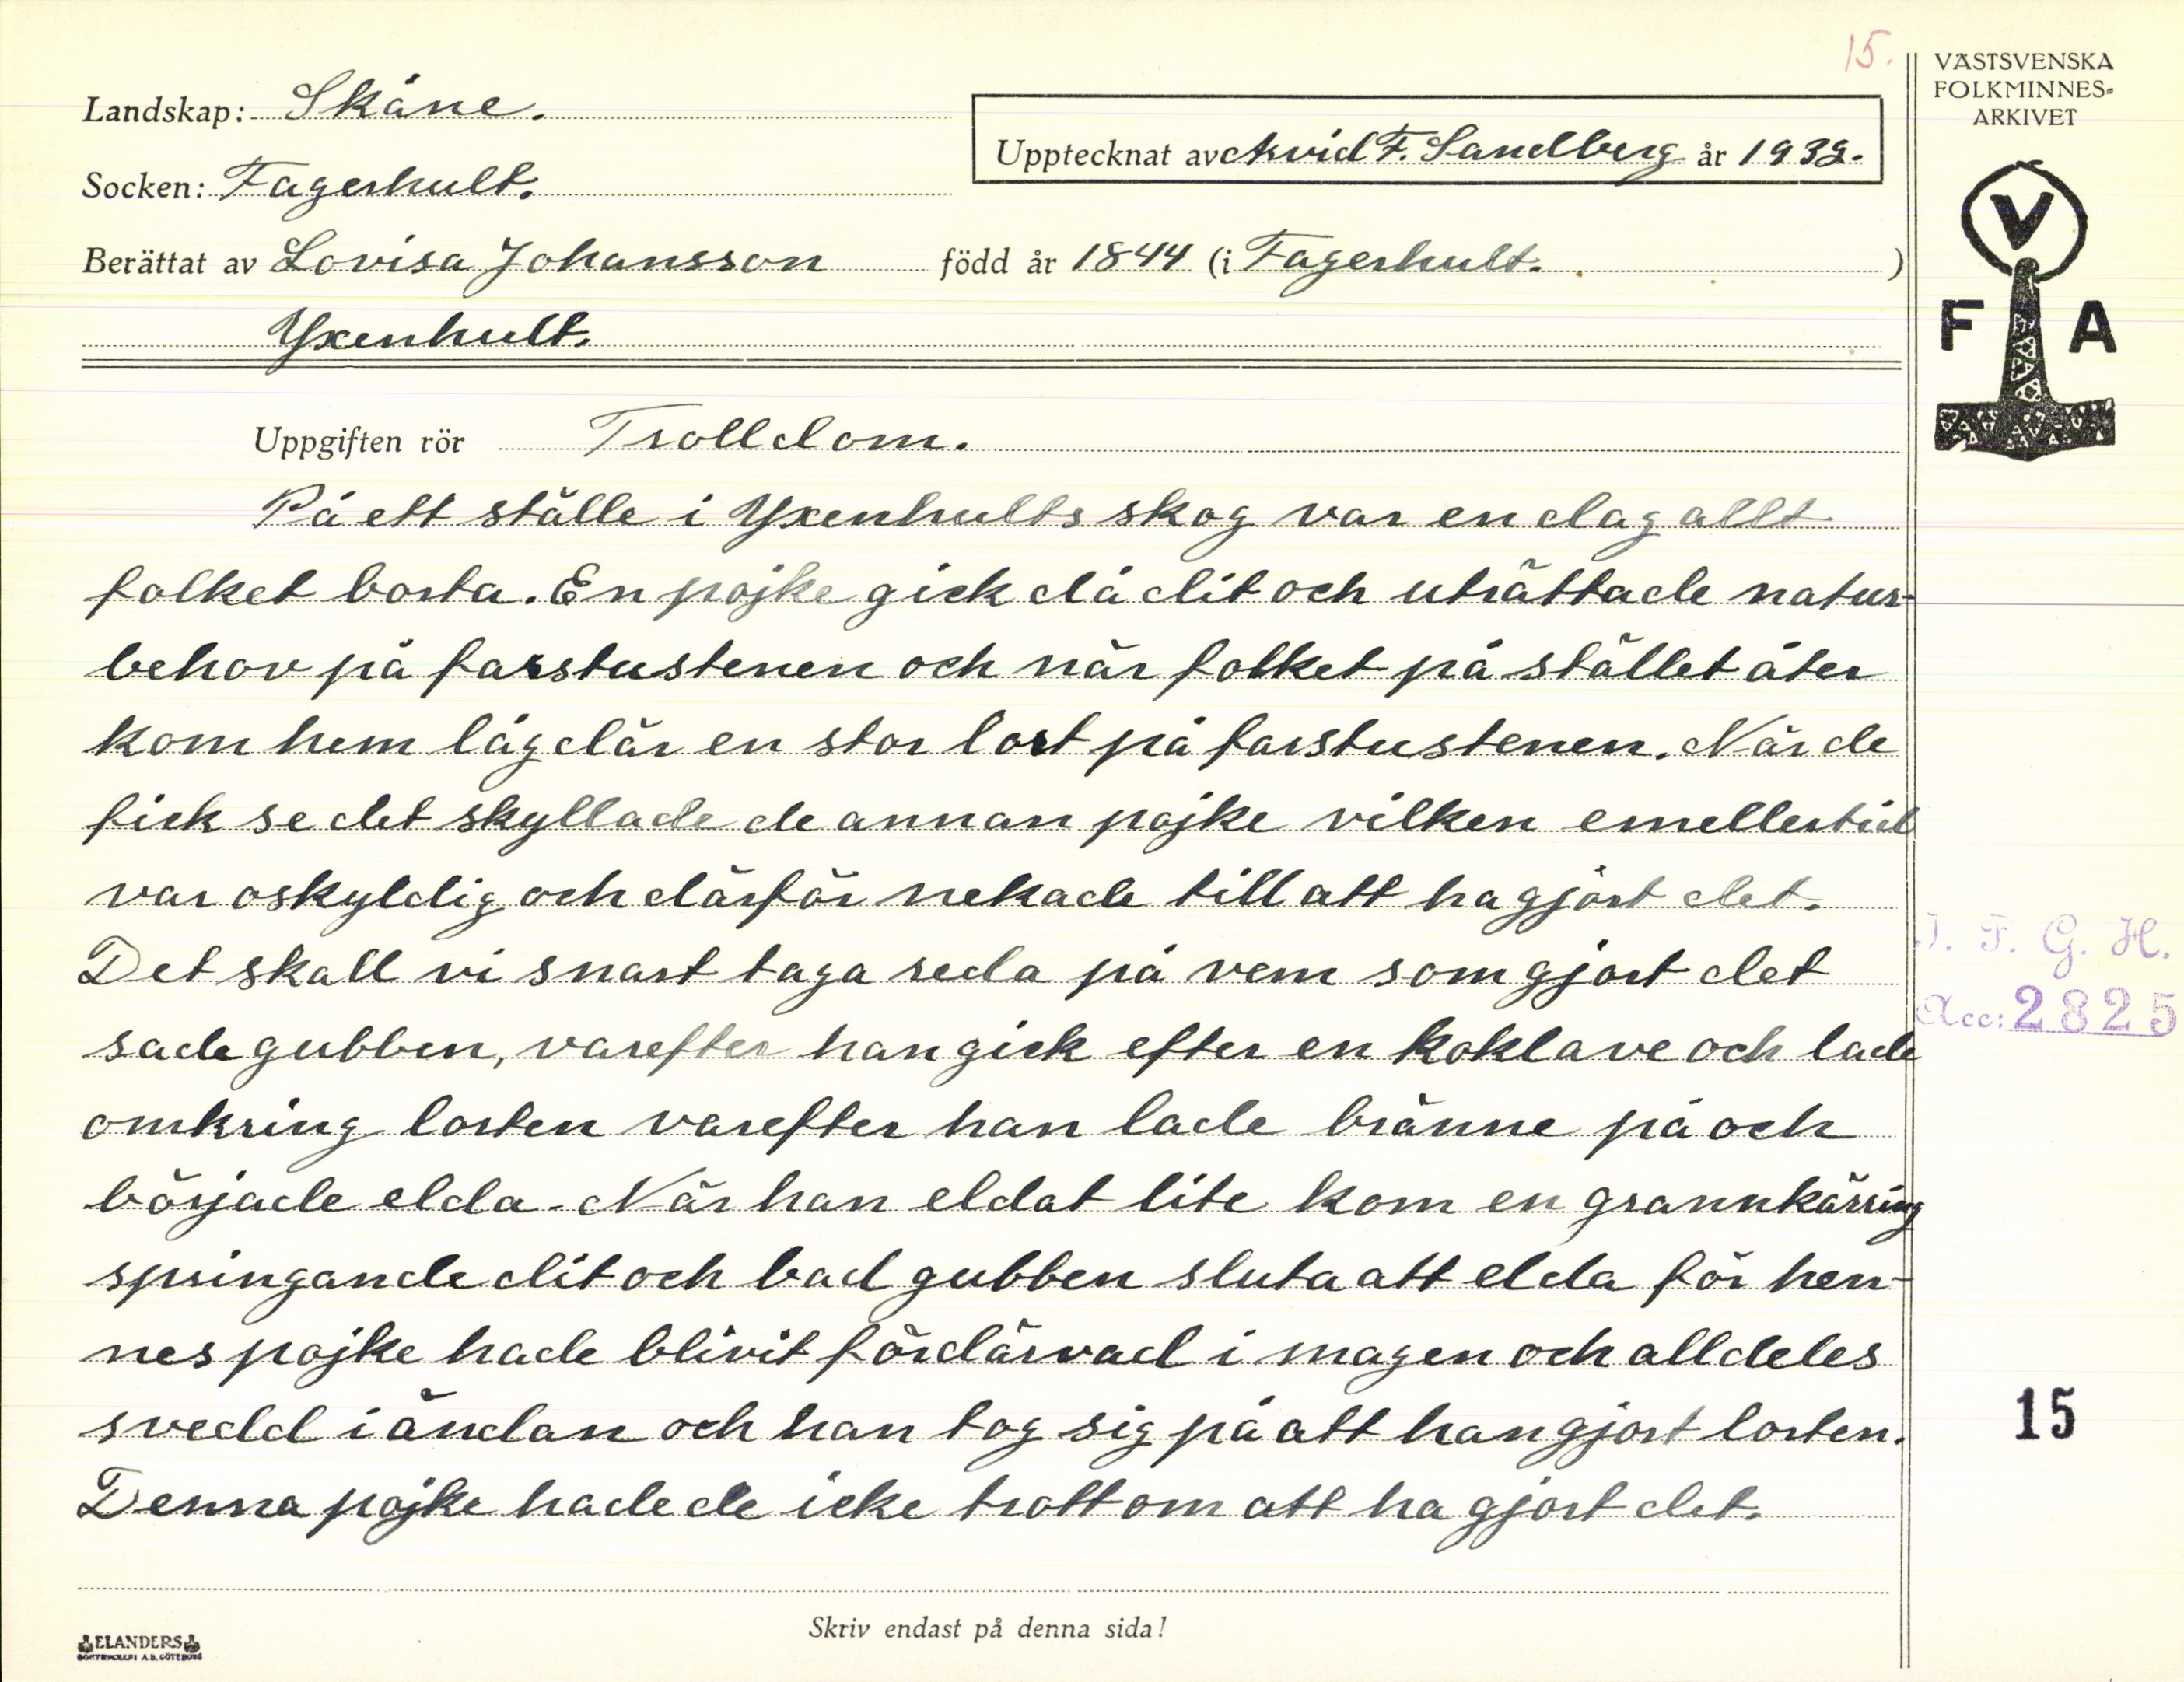 15.
Landskap: Skåne.
Upptecknat av Arvid F. Sandberg år 1932.
Socken: Fagerhult.
Berättat av Lovisa Johansson född år 1844 (i Fagerhult. )
Yxenhult.
VÄSTSVENSKA
FOLKMINNES-
ARKIVET
V
F A
Uppgiften rör Trolldom.
På ett ställe i Yxenhults skog var en dag allt
folket borta. En pojke gick då dit och uträttade natur-
behov på farstustenen och när folket på stället åter
kom hem låg där en stor lort på farstustenen. När de
fick se det skyllade de annan pojke vilken emellertid
var oskyldig och därför nekade till att ha gjort det.
Det skall vi snart taga reda på vem som gjort det
sade gubben, varefter han gick efter en koklave och lade
omkring lorten varefter han lade bränne på och
började elda. När han eldat lite kom en grannkärring
springande dit och bad gubben sluta att elda för hen-
nes pojke hade blivit fördärvad i magen och alldeles
svedd i ändan och han tog sig på att han gjort lorten.
Denna pojke hade de icke trott om att ha gjort det.
I. F. G. H.
Acc: 2825
15
Skriv endast på denna sida!
ELANDERS
BOKTRYCKERI A.B. GÖTEBORG